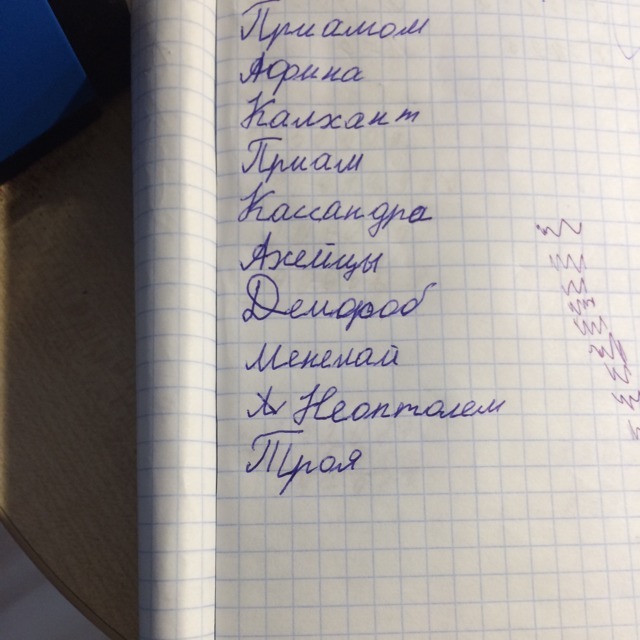 Приамом
Афина
Калхант
Приам
Кассандра
Ахейцы
Демороб
Менелай
Неоптолем
Троя